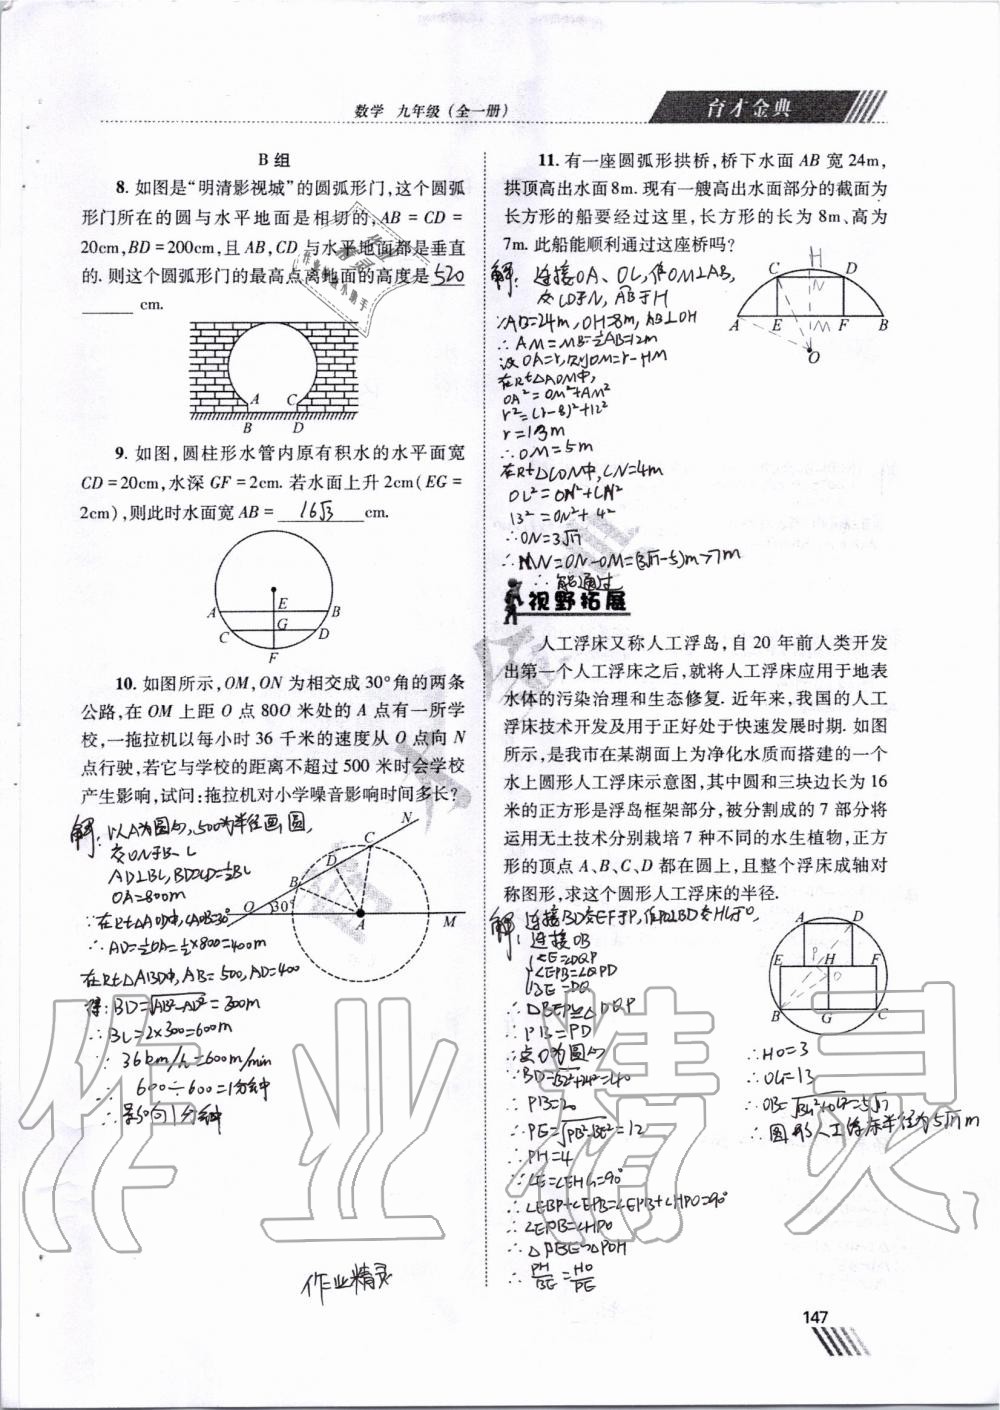 数学 九年级（全一册）
育才金典
B 组
8. 如图是“明清影视城”的圆弧形门,这个圆弧
形门所在的圆与水平地面是相切的, AB = CD =
20cm, BD = 200cm, 且 AB, CD 与水平地面都是垂直
的. 则这个圆弧形门的最高点离地面的高度是 520
cm.
A C
B D
9. 如图,圆柱形水管内原有积水的水平面宽
CD = 20cm, 水深 GF = 2cm. 若水面上升 2cm ( EG =
2cm ) , 则此时水面宽 AB = 16√3 cm.
E
A B
G
C D
F
10. 如图所示, OM, ON 为相交成 30°角的两条
公路,在 OM 上距 O 点 800 米处的 A 点有一所学
校,一拖拉机以每小时 36 千米的速度从 O 点向 N
点行驶,若它与学校的距离不超过 500 米时会学校
产生影响,试问:拖拉机对小学噪音影响时间多长?
解: 以A为圆心,500为半径画圆,
交ON于B、C
AD⊥BC, BD=CD=½BC
OA=800m
∵在Rt△AOD中,∠AOB=30°
∴AD=½OA=½×800=400m
在Rt△ABD中, AB=500, AD=400
得: BD=√AB²-AD²=300m
∴BC=2×300=600m
∵36km/h=600m/min
∴600÷600=1分钟
∴影响1分钟
N
C
D
B
O 30°
A M
作业精灵
11. 有一座圆弧形拱桥,桥下水面 AB 宽 24m,
拱顶高出水面 8m. 现有一艘高出水面部分的截面为
长方形的船要经过这里,长方形的长为 8m、高为
7m. 此船能顺利通过这座桥吗?
解: 连接OA、OC,作OM⊥AB,
交CD于N, AB于H
∵AB=24m, OH=8m, AB⊥OH
∴AM=MB=½AB=12m
设OA=r,则OM=r-HM
在Rt△AOM中,
OA²=OM²+AM²
r²=(r-8)²+12²
r=13m
∴OM=5m
在Rt△CON中, CN=4m
OC²=ON²+CN²
13²=ON²+4²
∴ON=3√17
∴MN=ON-OM=(3√17-5)m>7m
∴能通过
H
C D
N
A E M F B
O
视野拓展
人工浮床又称人工浮岛，自 20 年前人类开发
出第一个人工浮床之后,就将人工浮床应用于地表
水体的污染治理和生态修复. 近年来,我国的人工
浮床技术开发及用于正好处于快速发展时期. 如图
所示,是我市在某湖面上为净化水质而搭建的一个
水上圆形人工浮床示意图,其中圆和三块边长为 16
米的正方形是浮岛框架部分,被分割成的 7 部分将
运用无土技术分别栽培 7 种不同的水生植物,正方
形的顶点 A、B、C、D 都在圆上,且整个浮床成轴对
称图形,求这个圆形人工浮床的半径.
解: 连接BD交EF于P,作PO⊥BD交HG于O,
连接OB
∠E=∠DQP
∠EPB=∠QPD
BE=DQ
∴△BEP≌△DQP
∴PB=PD
∴点O为圆心
∵BD=√32²+24²=40
∴PB=20
∴PE=√PB²-BE²=12
∴PH=4
∵∠E=∠EHG=90°
∴∠EBP+∠EPB=∠EPB+∠HPO=90°
∴∠EPB=∠HPO
∴△PBE∽△POH
∴PH/BE=HO/PE
A D
E P H F
O
B G C
∴HO=3
∴OG=13
∴OB=√BG²+OG²=5√17
∴圆形人工浮床半径为5√17m
147